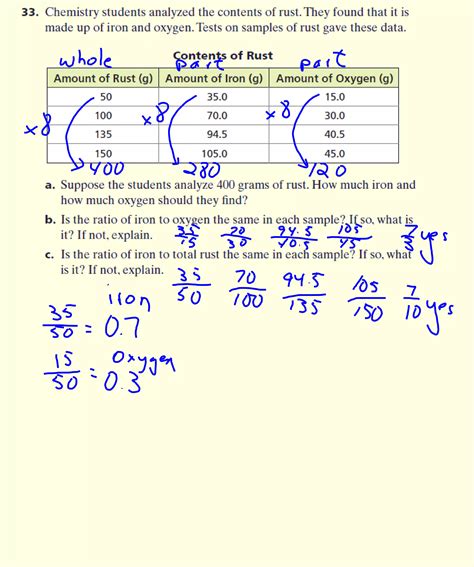 33. Chemistry students analyzed the contents of rust. They found that it is
made up of iron and oxygen. Tests on samples of rust gave these data.
whole part part
Contents of Rust
Amount of Rust (g) Amount of Iron (g) Amount of Oxygen (g)
50 35.0 15.0
x8 100 x8 70.0 x8 30.0
135 94.5 40.5
150 105.0 45.0
400 280 120
a. Suppose the students analyze 400 grams of rust. How much iron and
how much oxygen should they find?
b. Is the ratio of iron to oxygen the same in each sample? If so, what is
it? If not, explain. 35/15 70/30 94.5/40.5 105/45 7/3 yes
c. Is the ratio of iron to total rust the same in each sample? If so, what
is it? If not, explain. 35/50 70/100 94.5/135 105/150 7/10 yes
iron
35/50 = 0.7
15/50 = 0.3 Oxygen